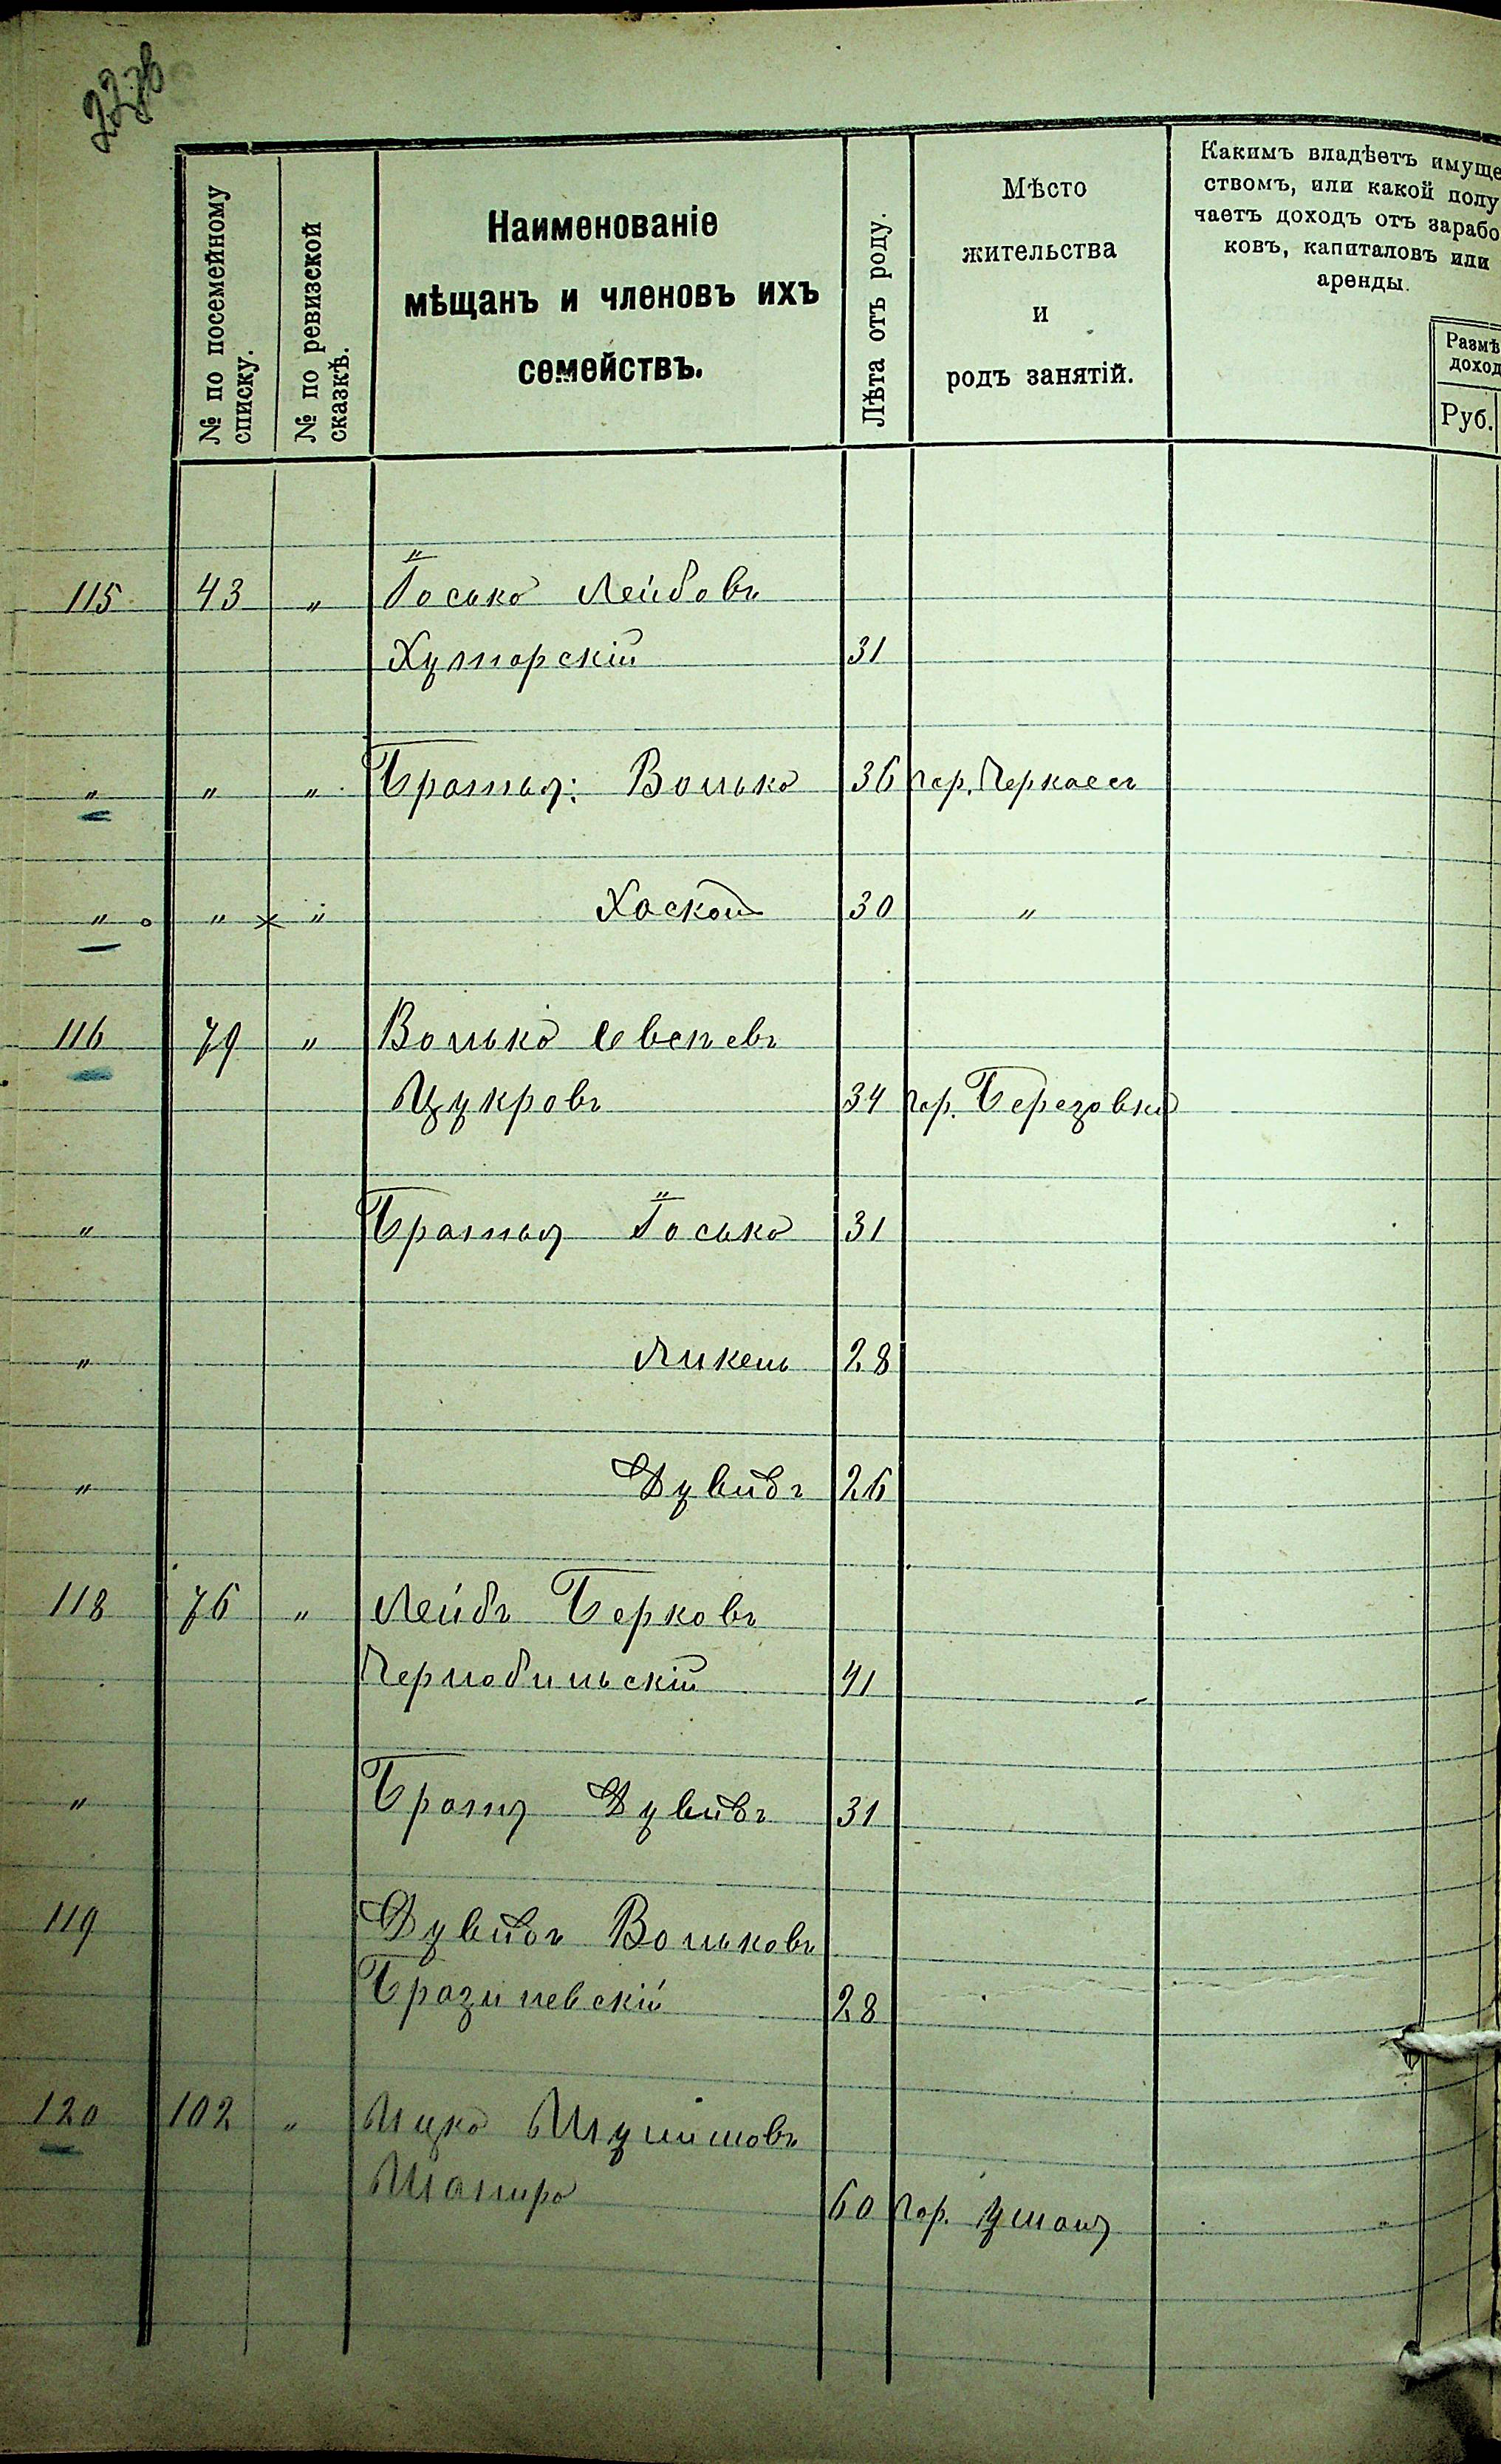 № по посемейному списку.
№ по ревизской сказкѣ.
Наименованіе
мѣщанъ и членовъ ихъ
семействъ.
Лѣта отъ роду.
Мѣсто
жительства
и
родъ занятій.
Какимъ владѣетъ имуще
ствомъ, или какой полу
чаетъ доходъ отъ зарабо
ковъ, капиталовъ или
аренды.
Размѣ
доход
Руб.
115 43 " Іосько Лейбовъ
Хуторскій 31
" " " Братья: Волько 36 гор. Черкассъ
" " " Хаскель 30 "
116 79 " Волько
Цукровъ 34 гор. Березовка
" Братья Іосько 31
" 28
" Дувидъ 26
118 76 " Лейбъ Берковъ
Чернобильскій 41
" Братъ Дувидъ 31
119 Дувидъ Вольковъ
28
120 102 " Ицко
Шапиро 60 гор. Умань